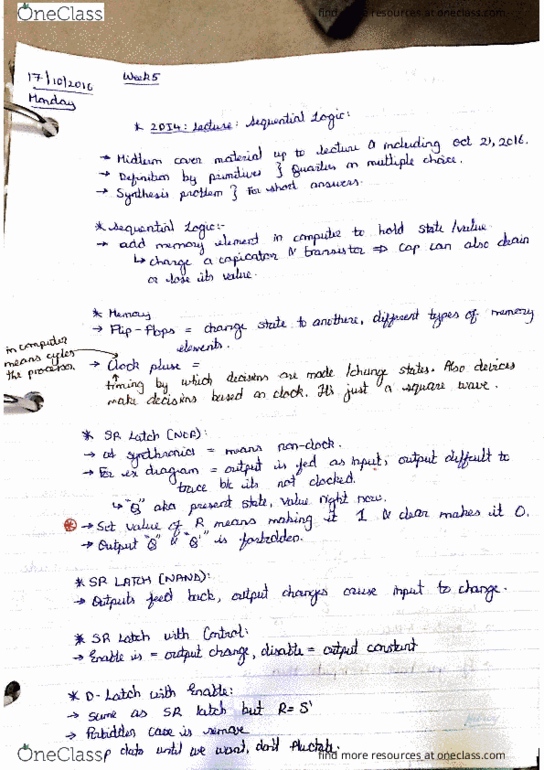 OneClass
find more resources at oneclass.com
17/10/2016
Week 5
Monday
* 2DI4: Lecture: Sequential Logic:
→ Midterm cover material up to lecture & including Oct 21, 2016.
→ Definition by primitives } Quartus on multiple choice.
→ Synthesis problem } For short answers.
* Sequential Logic:-
→ add memory element in computer to hold state/value
↳ charge a capicator & transistor ⇒ cap can also drain
or lose its value.
* Memory
→ Flip-Flops = change state to another, different types of memory
elements.
in computer
means cycles
the processor
→ Clock pluse =
timing by which decisions are made/change states. Also devices
make decisions based on clock. It's just a square wave.
* SR Latch (NOR):
→ at synchronics = means non-clock.
→ For ex diagram = output is fed as input, output difficult to
trace b/c its not clocked.
↳ "Q" aka present state, value right now.
→ Set value of R means making it 1 & clear makes it 0.
→ Output "Q" & "Q'" is forbidden.
* SR LATCH (NAND):
→ Outputs feed back, output changes cause input to change.
* SR Latch with Control:
→ Enable is = output change, disable = output constant
* D-Latch with Enable:
→ same as SR latch but R = S'
→ Forbidden case is remove
p data until we want, don't fluctab.
OneClass
find more resources at oneclass.com